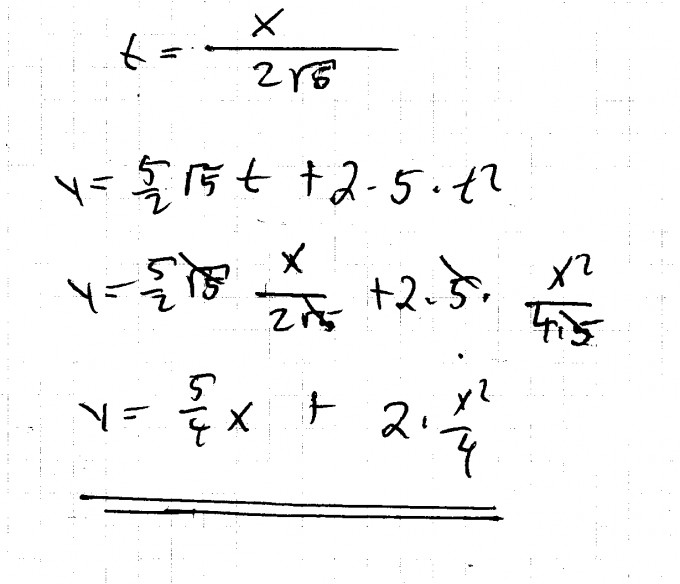 t = x / 2√5
y = 5/2 √5 t + 2 · 5 · t²
y = 5/2 √5 x / 2√5 + 2 · 5 · x² / 4·5
y = 5/4 x + 2 · x² / 4